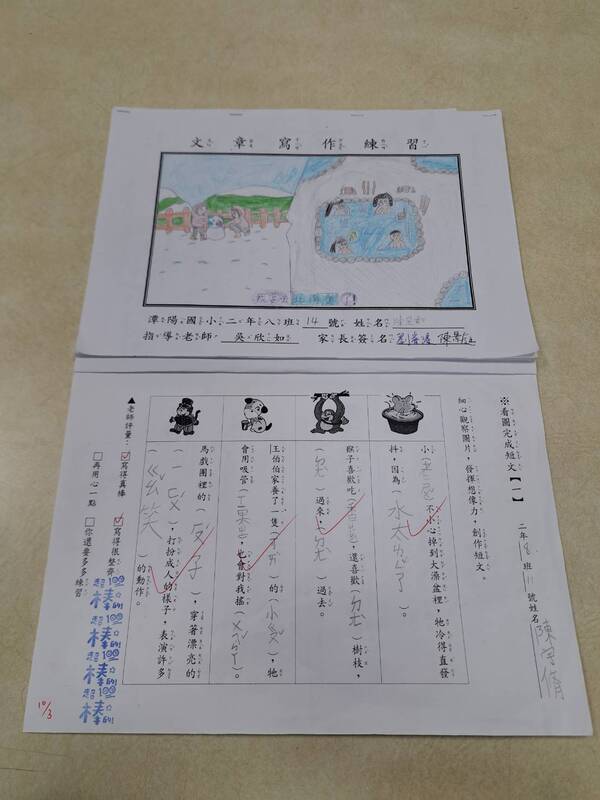 文章寫作練習
我想去北海道了!
潭陽國小二年八班14號 姓名
指導老師 吳欣如 家長簽名
※看圖完成短文【一】
二年8班11號姓名
細心觀察圖片,發揮想像力,創作短文。
小( )不小心掉到大澡盆裡,牠冷得直發
抖,因為(水太ㄅㄧㄥ了)。
猴子喜歡吃( ),還喜歡(ㄉㄤ)樹枝,
(ㄉㄤ)過來,(ㄉㄤ)過去。
王伯伯家養了一隻( )的(小狗),牠
會用吸管( ),也會對我搖(ㄨㄟˇㄅㄚ)。
馬戲團裡的( ㄗ),穿著漂亮的
(ㄧ ㄈㄨˊ),打扮成人的樣子,表演許多
(ㄍㄠˇ笑)的動作。
▲老師評量:
☑寫得真棒
☑寫得很整齊
□再用心一點
□你還要多多練習
超棒的!
100
超棒的!
100
超棒的!
100
超棒的!
10/3